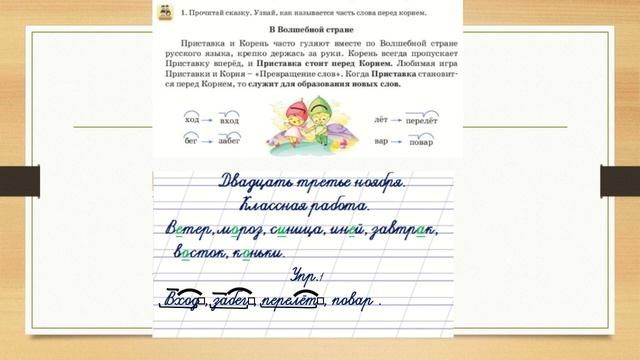 1. Прочитай сказку. Узнай, как называется часть слова перед корнем.
В Волшебной стране
Приставка и Корень часто гуляют вместе по Волшебной стране
русского языка, крепко держась за руки. Корень всегда пропускает
Приставку вперёд, и Приставка стоит перед Корнем. Любимая игра
Приставки и Корня – «Превращение слов». Когда Приставка становит-
ся перед Корнем, то служит для образования новых слов.
ход вход лёт перелёт
бег забег вар повар
Двадцать третье ноября.
Классная работа.
Ветер, мороз, синица, иней, завтрак,
восток, коньки.
Упр.1
Вход, забег, перелёт, повар.